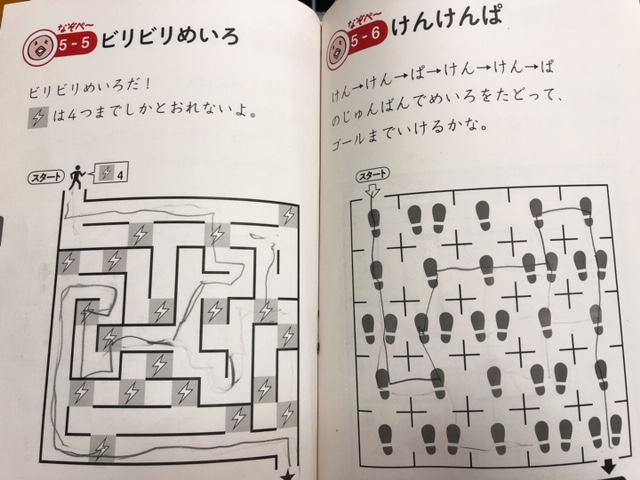 なぞぺ〜
5-5 ビリビリめいろ
ビリビリめいろだ！
は4つまでしかとおれないよ。
スタート
4
なぞぺ〜
5-6 けんけんぱ
けん→けん→ぱ→けん→けん→ぱ
のじゅんばんでめいろをたどって、
ゴールまでいけるかな。
スタート